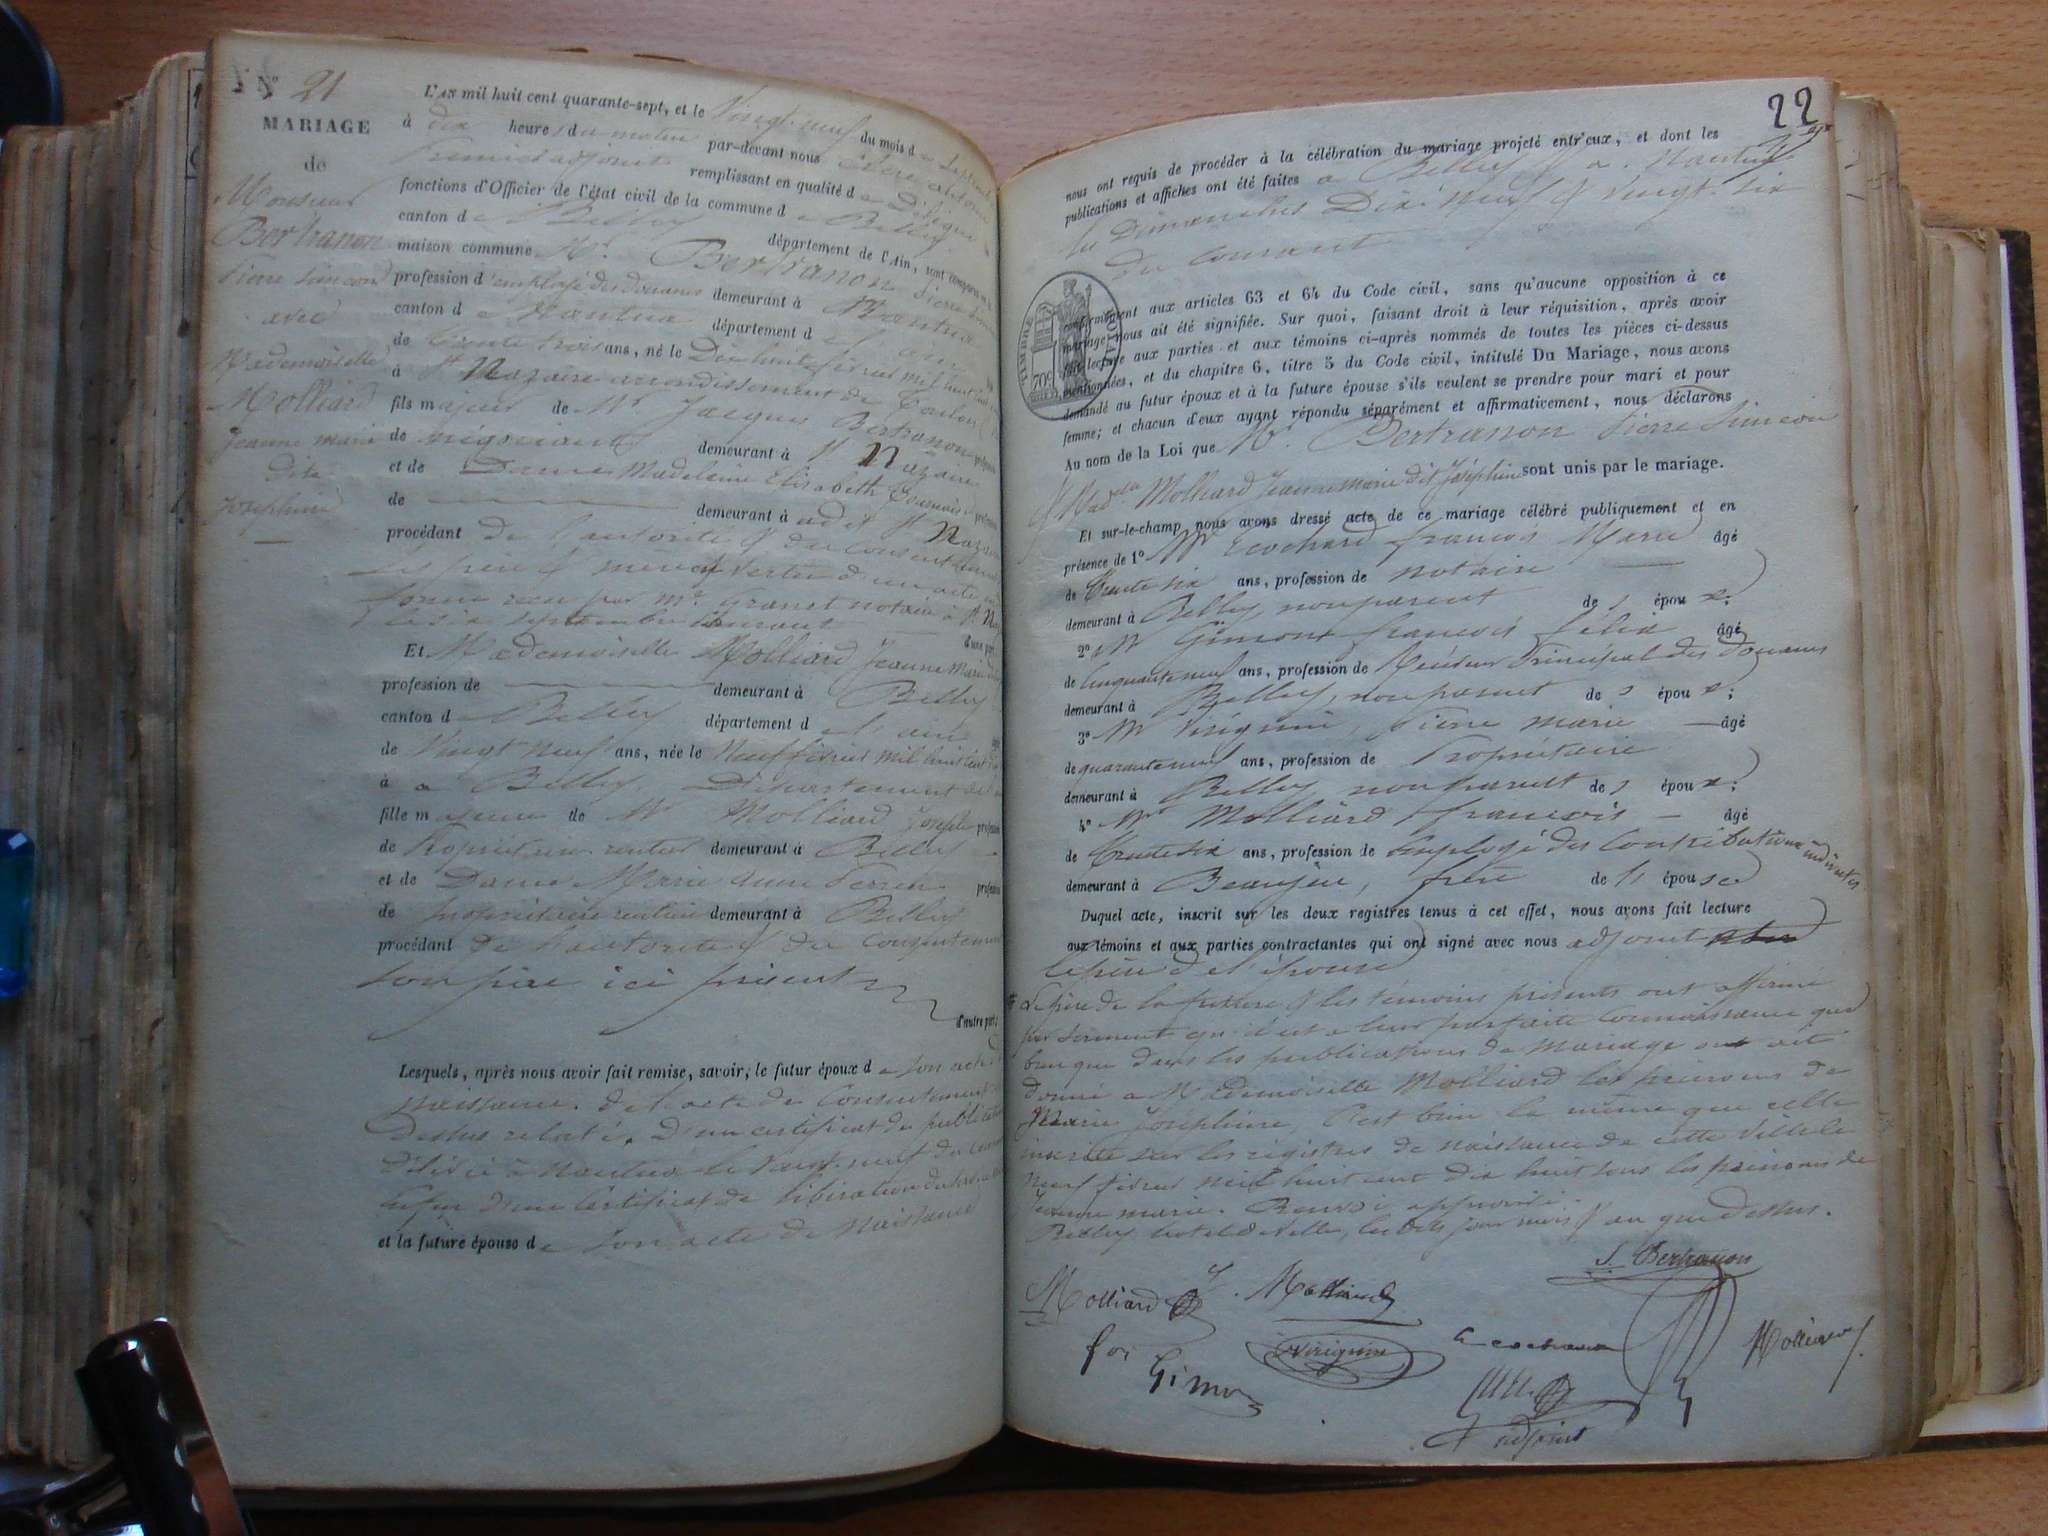 N° 21
MARIAGE
de
Monsieur
Bertranon
Pierre Simeon
avec
Mademoiselle
Molliard
Jeanne marie
dite
Joséphine
L'AN mil huit cent quarante-sept, et le Vingt-neuf du mois de Septembre
à dix heures du matin par-devant nous
Premier adjoint remplissant en qualité de Délégué
fonctions d'Officier de l'état civil de la commune de Belley
canton de Belley département de l'Ain, sont comparus en la
maison commune Mr. Bertranon Pierre Simeon
profession d'employé des douanes demeurant à Nantua
canton de Nantua département de l'ain
de trente trois ans, né le Dix huit février mil huit cent
à St Nazaire arrondissement de Toulon
fils majeur de Mr Jacques Bertranon profession
de négociant demeurant à St Nazaire
et de Dame Madeleine Elisabeth profession
de demeurant à au dit St Nazaire
procédant de l'autorité & du consentement
ses père & mère en vertu d'un acte en
forme reçu par Me Granet notaire à St Naz
le six septembre courant
d'une part.
Et Mademoiselle Molliard Jeanne Marie
profession de demeurant à Belley
canton de Belley département de l'ain
de Vingt neuf ans, née le Neuf février mil huit cent dix
à a Belley, Département de l'
fille majeure de Mr Molliard Joseph profession
de Propriétaire rentier demeurant à Belley
et de Dame Marie Anne Perrin profession
de propriétaire rentière demeurant à Belley
procédant de l'autorité & du Consentement
son père ici présent
d'autre part;
Lesquels, après nous avoir fait remise, savoir; le futur époux de son acte de
naissance. de l'acte de Consentement
dessus relaté. D'un certificat de publication
délivré à Nantua le Vingt-neuf du courant
Enfin d'un Certificat de libération du
et la future épouse de son acte de Naissance
22
nous ont requis de procéder à la célébration du mariage projeté entr'eux, et dont les
publications et affiches ont été faites à Belley & a Nantua
les Dimanches Dix-neuf & vingt-six
du Courant
conformément aux articles 63 et 64 du Code civil, sans qu'aucune opposition à ce
mariage nous ait été signifiée. Sur quoi, faisant droit à leur réquisition, après avoir
fait lecture aux parties et aux témoins ci-après nommés de toutes les pièces ci-dessus
mentionnées, et du chapitre 6, titre 5 du Code civil, intitulé Du Mariage, nous avons
demandé au futur époux et à la future épouse s'ils veulent se prendre pour mari et pour
femme; et chacun d'eux ayant répondu séparément et affirmativement, nous déclarons
Au nom de la Loi que Mr. Bertranon Pierre Simeon
& Madlle Molliard Jeanne marie dit Joséphine sont unis par le mariage.
TIMBRE ROYAL
70c
Et sur-le-champ nous avons dressé acte de ce mariage célébré publiquement et en
présence de 1° Mr Cochard françois Marie âgé
de trente six ans, profession de notaire
demeurant à Belley, non parent des époux;
2° Mr Gimont françois félix âgé
de Cinquante neuf ans, profession de Receveur Principal des Douanes
demeurant à Belley, non parent des époux;
3° Mr Virignin, Pierre marie âgé
de quarante neuf ans, profession de Propriétaire
demeurant à Belley, non parent des époux;
4° Mr Molliard françois âgé
de trente six ans, profession de Employé des Contributions indirectes
demeurant à Beaujeu, frère de l'épouse
Duquel acte, inscrit sur les deux registres tenus à cet effet, nous avons fait lecture
aux témoins et aux parties contractantes qui ont signé avec nous adjoint
le père de l'épouse
Le père de la future & les témoins présents ont affirmé
par serment qu'il est a leur parfaite Connaissance que
bien que dans les publications de Mariage on ait
donné a Mademoiselle Molliard les prénoms de
Marie Joséphine, C'est bien la même que celle
inscrite sur les registres de naissance de cette Ville le
neuf février mil huit cent dix huit sous les prénoms de
Jeanne marie. Renvoi approuvé.
Belley hotel de ville, les dits jour mois & an que dessus.
S. Bertranon
Molliard
J. Molliard
Virignin
Cochard
Molliard
fois Gimon
adjoint